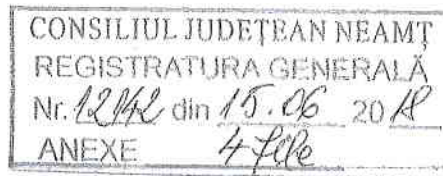 CONSILIUL JUDEȚEAN NEAMȚ
REGISTRATURA GENERALĂ
Nr. 12142 din 15.06 2018
ANEXE 4 file